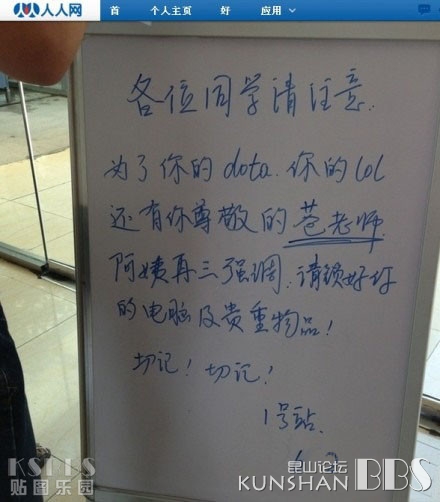 人人网 首 个人主页 好 应用
各位同学请注意.
为了你的dota.你的lol
还有你尊敬的苍老师.
阿姨再三强调.请锁好你
的电脑及贵重物品!
切记! 切记!
1号站.
KSBBS
贴图乐园
昆山论坛
KUNSHAN BBS